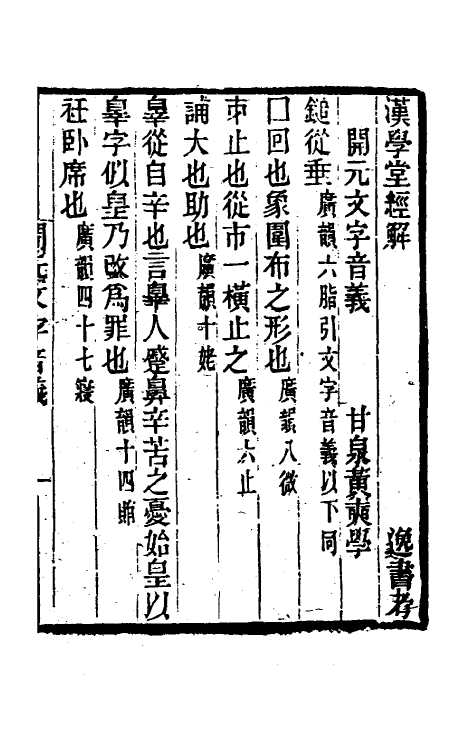 漢學堂經解 逸書考
開元文字音義 甘泉黃奭學
鎚從垂 廣韻六脂引文字音義以下同
囗回也象圍布之形也 廣韻八微
𣎵止也從市一橫止之 廣韻六止
誧大也助也 廣韻十姥
辠從自辛也言辠人蹙鼻辛苦之憂始皇以
辠字似皇乃改為罪也 廣韻十四賄
衽卧席也 廣韻四十七寑
開元文字音義 一